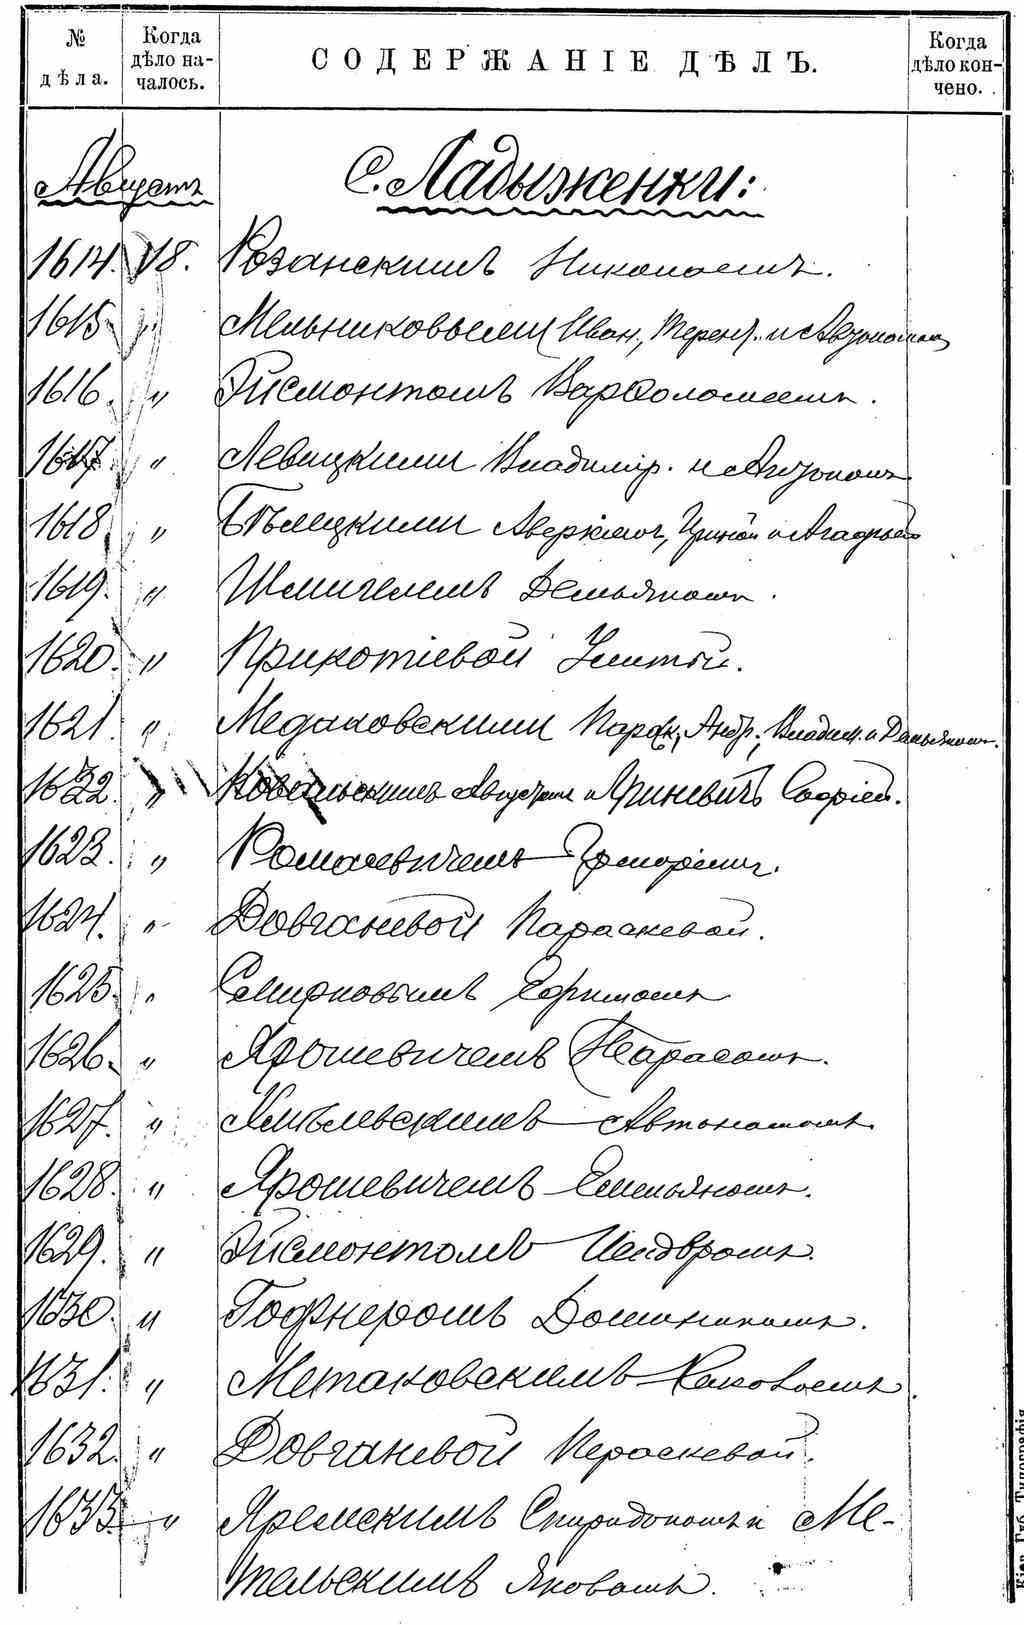 № дѣла.
Когда дѣло началось.
СОДЕРЖАНІЕ ДѢЛЪ.
Когда дѣло кончено.
Августъ
С. Ладыженки:
1614. 18. Розанскимъ Николаемъ.
1615. " Мельниковыми Иван., Терент. и Автономом
1616. " Эйсмонтомъ Варфоломеемъ.
1617. " Левицкими Владимір. и Антоном
1618. " Бѣлецкими Аверкіемъ, Ириной и Агафьей
1619. " Шмигелемъ Демьяномъ.
1620. " Прикотіевой Улитой.
1621. " Медаковскими Парск., Андр., Владим. и Демьяном.
1622. " Ковальскимъ Августин и Яриневичъ Софіей.
1623. " Романевичемъ Григоріемъ.
1624. " Довганевой Параскевой.
1625. " Смирновымъ Ефимомъ
1626. " Ярошевичемъ Тарасомъ.
1627. " Хмѣлевскимъ Автономомъ.
1628. " Ярошевичемъ Емельяномъ.
1629. " Эйсмонтомъ Исидоромъ.
1630. " Гофнеромъ Доминикомъ.
1631. " Метаковскимъ Яковомъ
1632. " Довганевой Пераскевой.
1633. " Яремскимъ Спиридономъ и Ме-
тельскимъ Яковомъ.
Кіев. Губ. Типографія